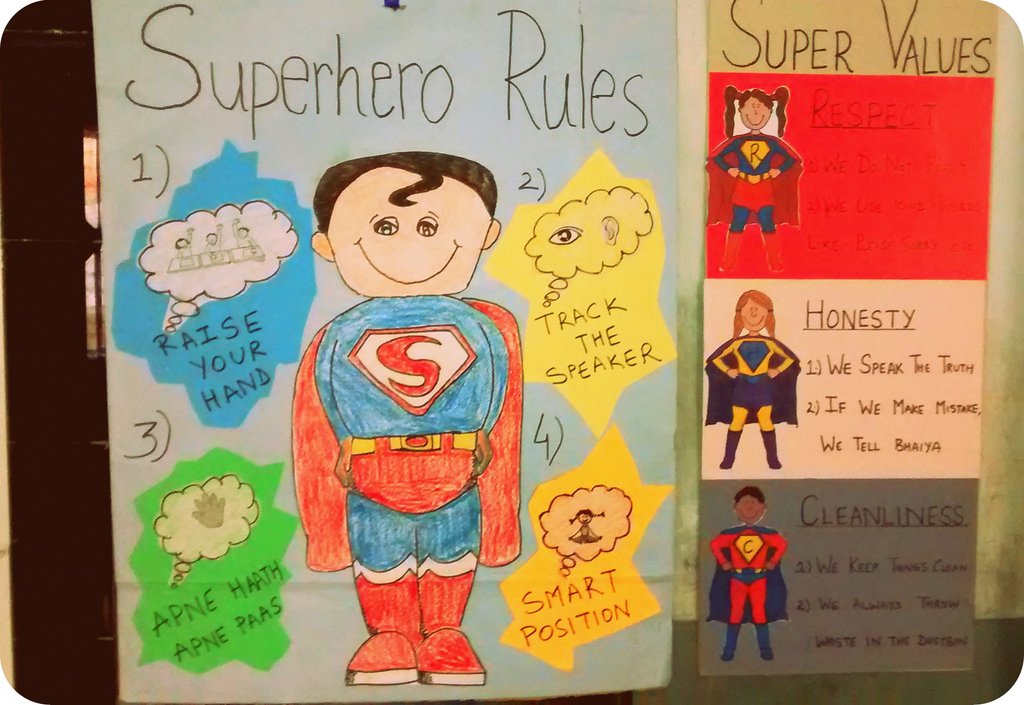 Superhero Rules
1)
RAISE
YOUR
HAND
2)
TRACK
THE
SPEAKER
S
3)
APNE HAATH
APNE PAAS
4)
SMART
POSITION
SUPER VALUES
R
RESPECT
1) WE DO NOT FIGHT
2) WE USE KIND WORDS
LIKE PLEASE SORRY ETC
H
HONESTY
1) WE SPEAK THE TRUTH
2) IF WE MAKE MISTAKE,
WE TELL BHAIYA
C
CLEANLINESS
1) WE KEEP THINGS CLEAN
2) WE ALWAYS THROW
WASTE IN THE DUSTBIN